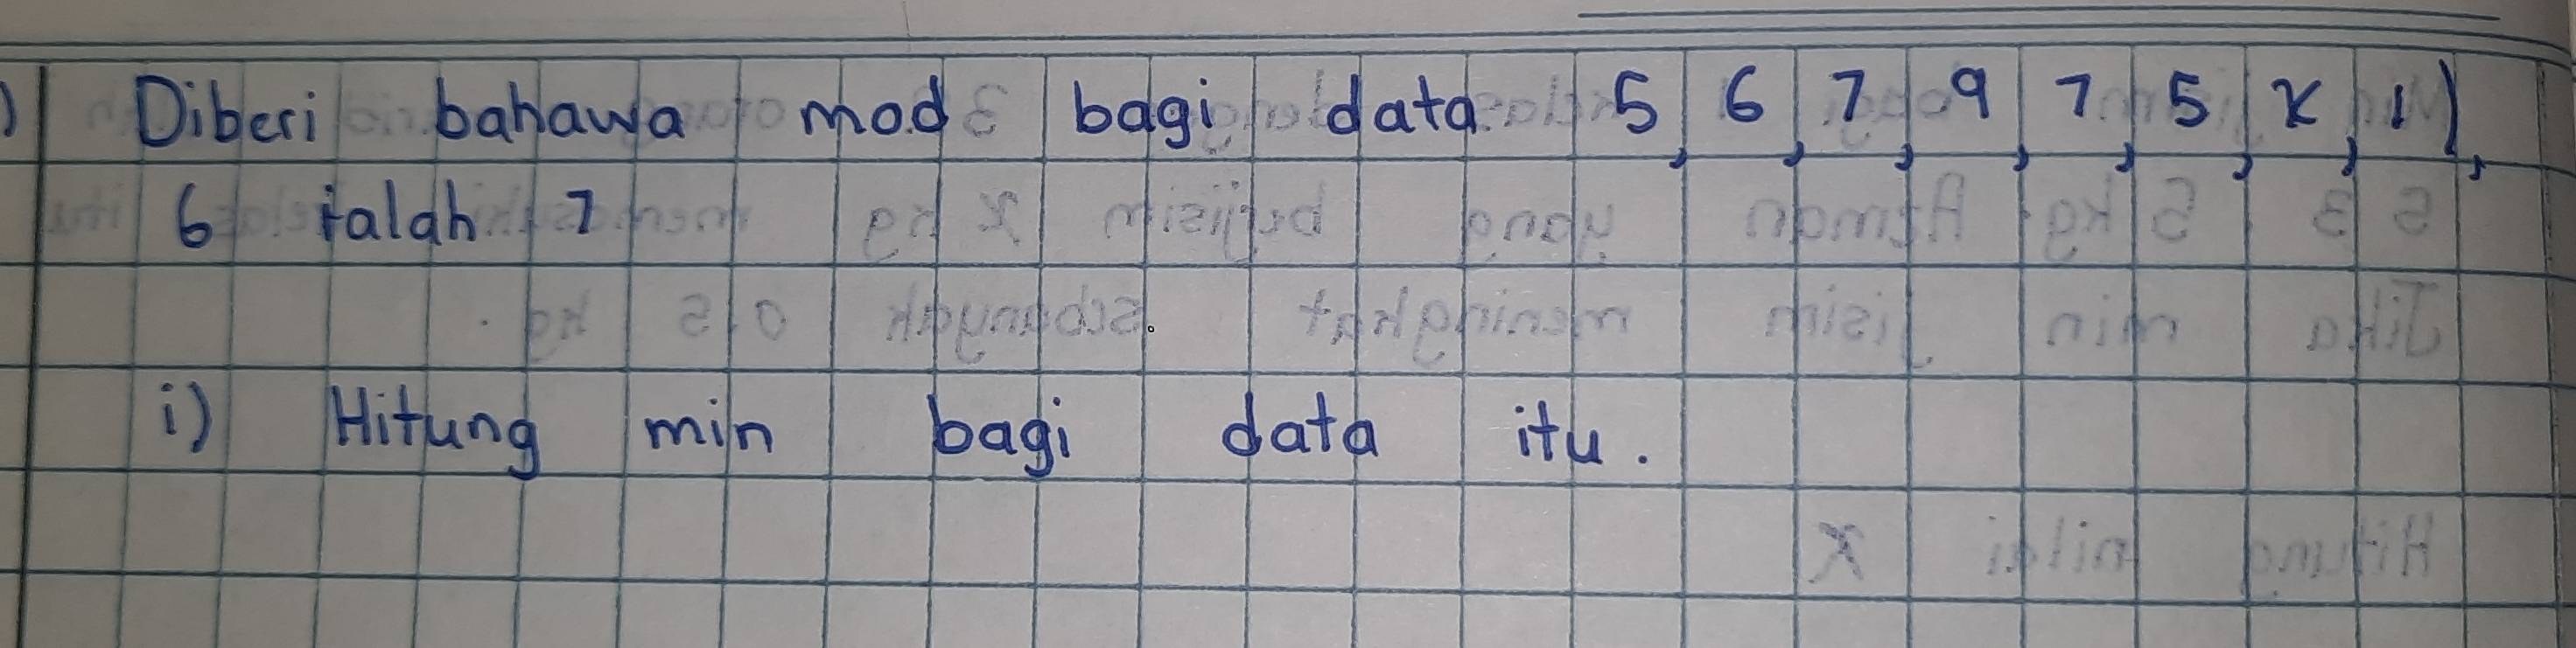 ) Diberi bahawa mod bagi data 5, 6, 7, 9, 7, 5, x, 11,
6 ialah 7
i) Hitung min bagi data itu.